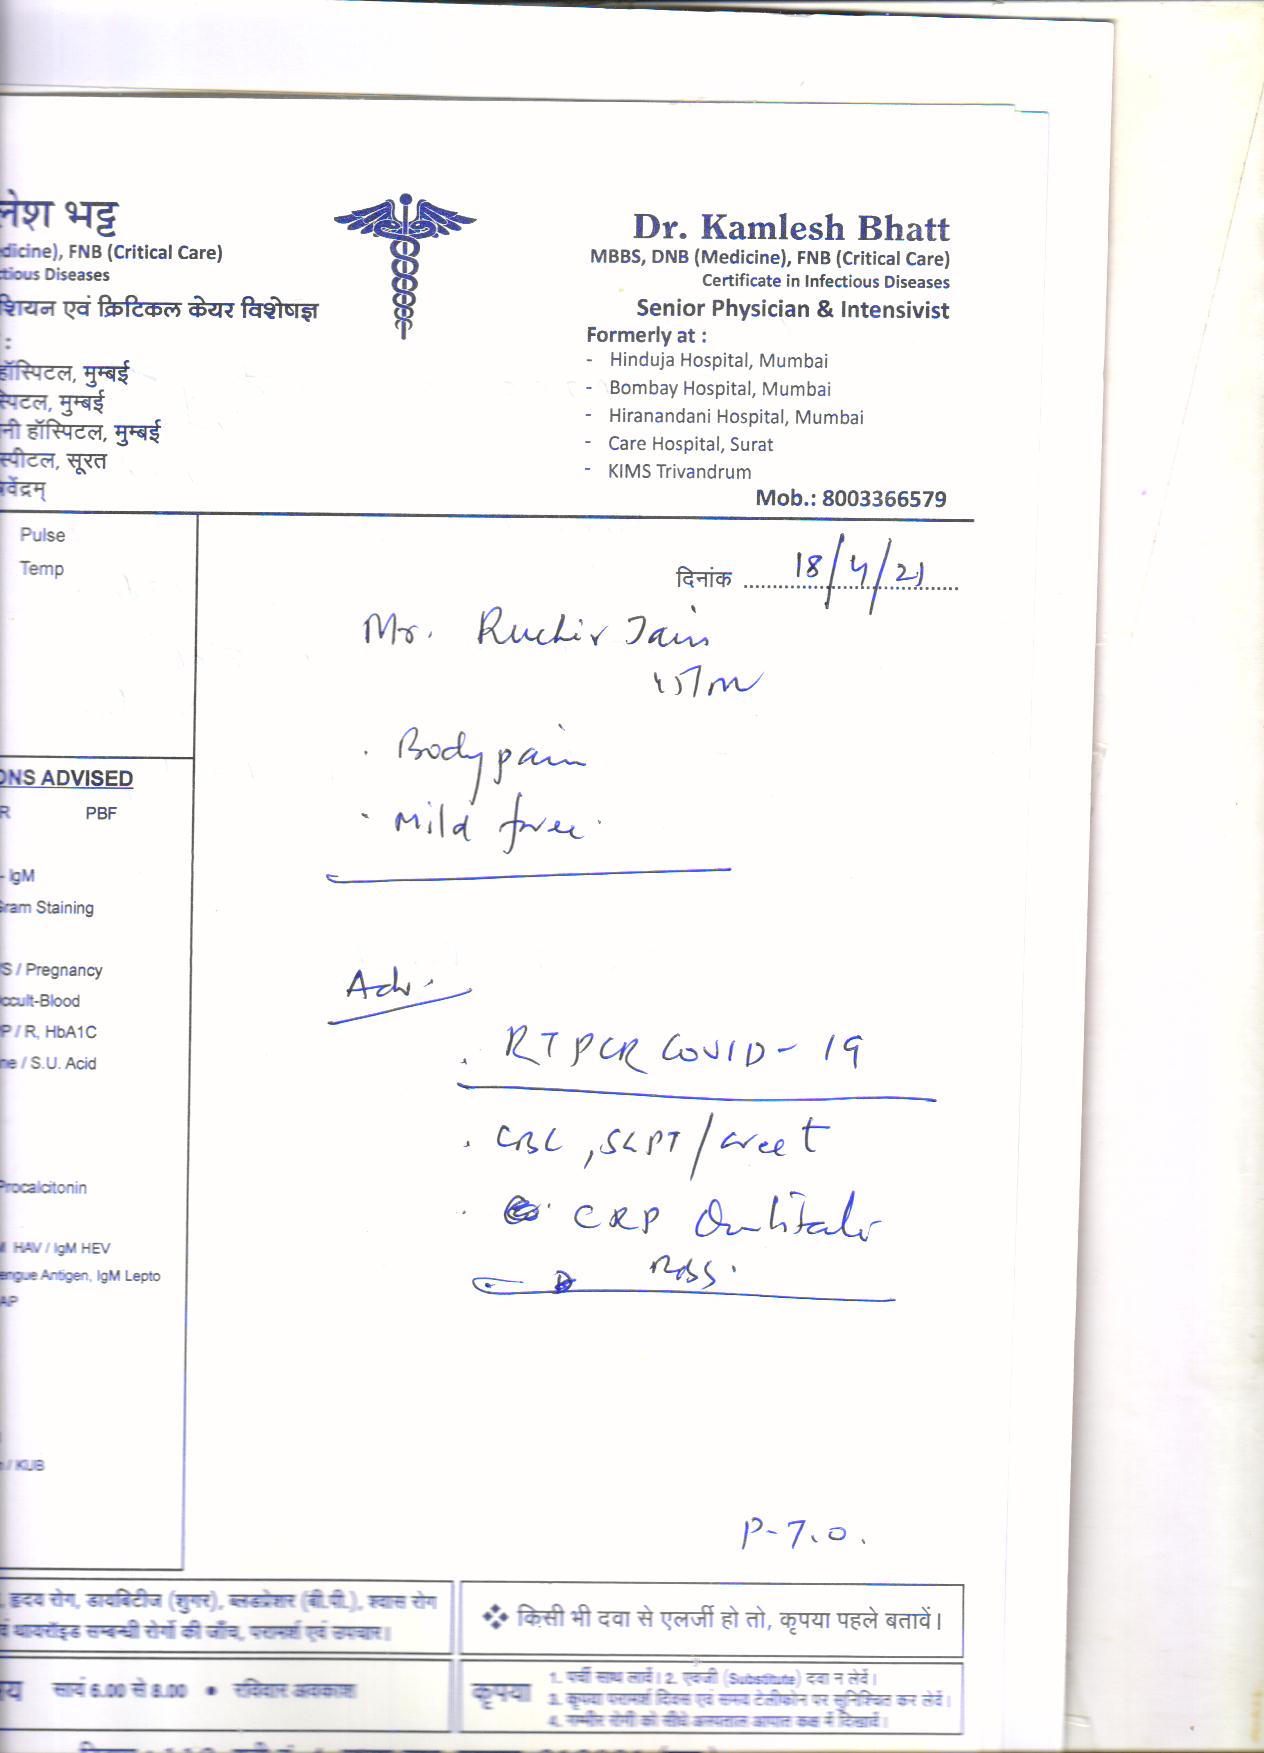 लेश भट्ट
dicine), FNB (Critical Care)
tious Diseases
शियन एवं क्रिटिकल केयर विशेषज्ञ
:
हॉस्पिटल, मुम्बई
स्पिटल, मुम्बई
नी हॉस्पिटल, मुम्बई
स्पीटल, सूरत
वेंद्रम्
Dr. Kamlesh Bhatt
MBBS, DNB (Medicine), FNB (Critical Care)
Certificate in Infectious Diseases
Senior Physician & Intensivist
Formerly at :
- Hinduja Hospital, Mumbai
- Bombay Hospital, Mumbai
- Hiranandani Hospital, Mumbai
- Care Hospital, Surat
- KIMS Trivandrum
Mob.: 8003366579
Pulse
Temp
दिनांक 18/4/21
Mr. Ruchir Jain
. Body pain
. Mild
ONS ADVISED
R PBF
- IgM
Gram Staining
VS / Pregnancy
Occult-Blood
PP / R, HbA1C
ne / S.U. Acid
Procalcitonin
M HAV / IgM HEV
engue Antigen, IgM Lepto
AP
/ KUB
Adv.
. RTPCR COVID-19
. CBC, SGPT/
. CRP
RBS.
P.T.O.
हृदय रोग, डायबिटीज (शुगर), ब्लडप्रेशर (बी.पी.), श्वास रोग
वं थायरॉइड सम्बन्धी रोगों की जाँच, परामर्श एवं उपचार।
❖ किसी भी दवा से एलर्जी हो तो, कृपया पहले बतावें।
मय सायं 6.00 से 8.00 • रविवार अवकाश
कृपया
1. पर्ची साथ लावें। 2. एवजी (Substitute) दवा न लेवें।
3. कृपया परामर्श दिवस एवं समय टेलीफोन पर सुनिश्चित कर लेवें।
4. गम्भीर रोगी को सीधे अस्पताल आपात कक्ष में दिखावें।